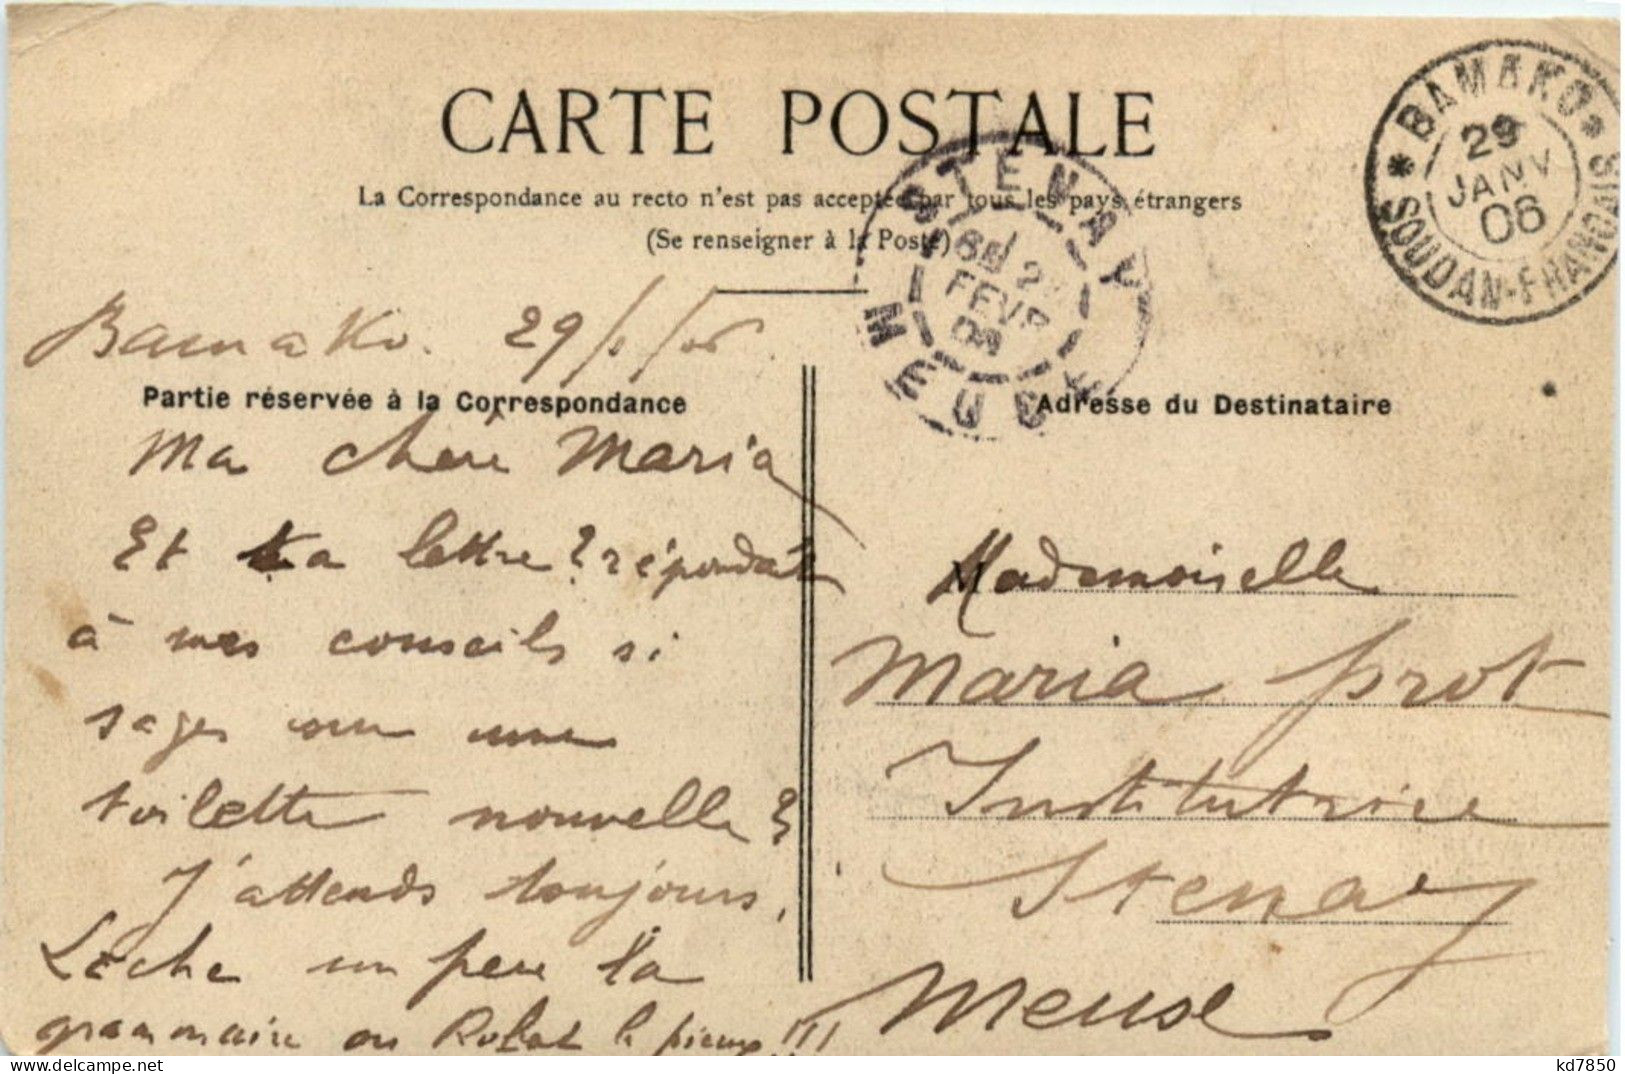 CARTE POSTALE
La Correspondance au recto n'est pas acceptée par tous les pays étrangers
(Se renseigner à la Poste)
* BAMAKO *
29
JANV
06
SOUDAN-FRANÇAIS
STENAY
FEVR
MEUSE
Bamako. 29/1/06
Partie réservée à la Correspondance
Ma chère Maria
Et ta lettre? répondant
à mes conseils si
sages sur une
toilette nouvelle?
J'attends toujours.
Lâche un peu la
grammaire ou Robat le pieux!!!
Adresse du Destinataire
Mademoiselle
Maria Prot
Institutrice
Stenay
Meuse
kd7850